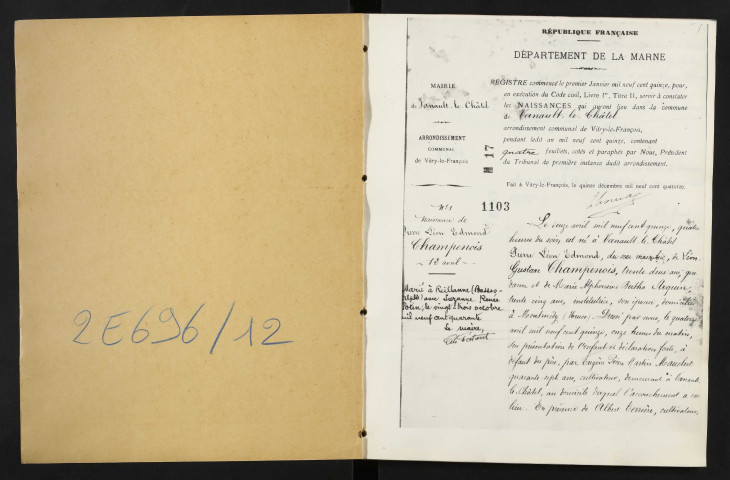 2E696/12
RÉPUBLIQUE FRANÇAISE
DÉPARTEMENT DE LA MARNE
MAIRIE
de Vanault-le-Châtel
ARRONDISSEMENT
COMMUNAL
de Vitry-le-François
REGISTRE commencé le premier Janvier mil neuf cent quinze, pour,
en exécution du Code civil, Livre Ier, Titre II, servir à constater
les NAISSANCES qui auront lieu dans la commune
de Vanault-le-Châtel
arrondissement communal de Vitry-le-François,
pendant ledit an mil neuf cent quinze, contenant
quatre feuillets, cotés et paraphés par Nous, Président
du Tribunal de première instance dudit arrondissement.
Fait à Vitry-le-François, le quinze décembre mil neuf cent quatorze.
17
1103
N° 1
Naissance de
Pierre Léon Edmond
Champenois
12 avril
Marié à Reillanne (Basses-
Alpes) avec Suzanne Renée
le vingt-trois octobre
mil neuf cent quarante
le maire,
Le onze avril mil neuf cent quinze, quatre
heures du soir, est né à Vanault-le-Châtel
Pierre Léon Edmond, du sexe masculin, de Léon
Gustave Champenois, trente deux ans,
et de Marie Alphonsine Berthe
trente cinq ans, institutrice, son épouse, domiciliés
à Dressé par nous, le quatorze
avril mil neuf cent quinze, onze heures du matin,
sur présentation de l'enfant et déclaration faite, à
défaut du père, par Eugène Martin
quarante sept ans, cultivateur, demeurant à Vanault-
le-Châtel, au domicile duquel l'accouchement a eu
lieu. En présence de Albert cultivateur,